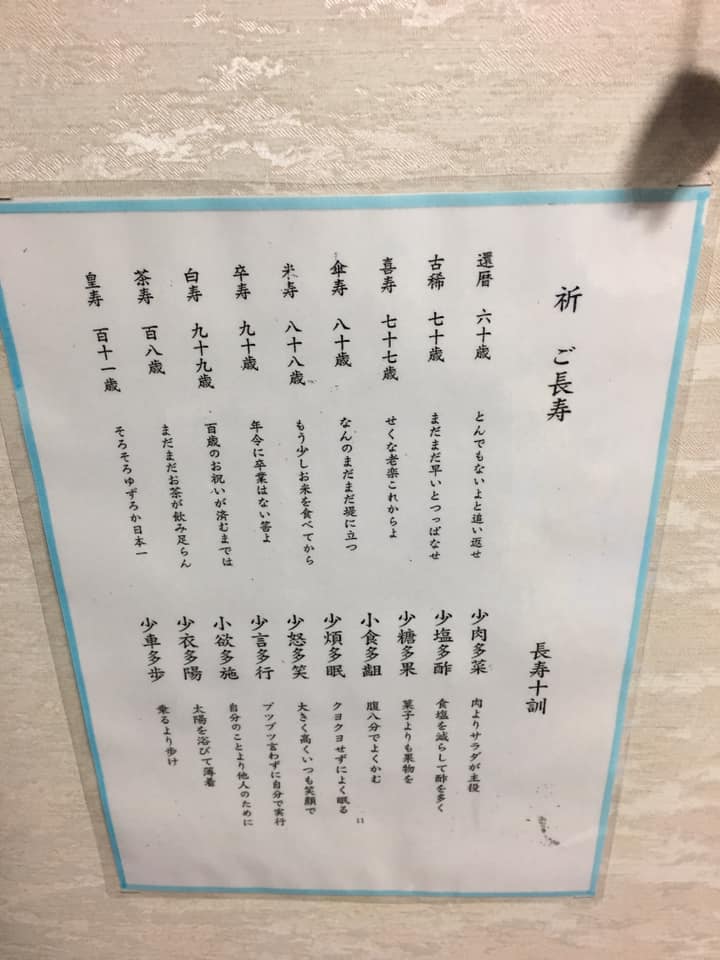 祈 ご長寿
還暦 六十歳 とんでもないよと追い返せ
古稀 七十歳 まだまだ早いとつっぱなせ
喜寿 七十七歳 せくな老楽これからよ
傘寿 八十歳 なんのまだまだ堤に立つ
米寿 八十八歳 もう少しお米を食べてから
卒寿 九十歳 年令に卒業はない筈よ
白寿 九十九歳 百歳のお祝いが済むまでは
茶寿 百八歳 まだまだお茶が飲み足らん
皇寿 百十一歳 そろそろゆずろか日本一
長寿十訓
少肉多菜 肉よりサラダが主役
少塩多酢 食塩を減らして酢を多く
少糖多果 菓子よりも果物を
小食多齟 腹八分でよくかむ
少煩多眠 クヨクヨせずによく眠る
少怒多笑 大きく高くいつも笑顔で
少言多行 ブツブツ言わずに自分で実行
小欲多施 自分のことより他人のために
少衣多陽 太陽を浴びて薄着
少車多歩 乗るより歩け
11